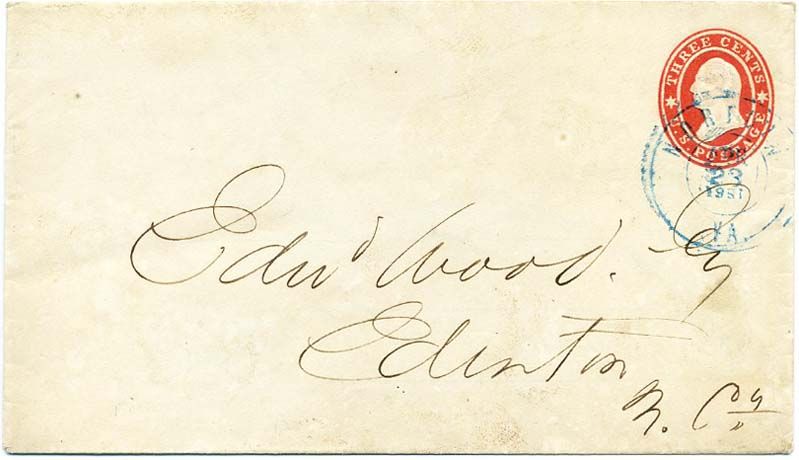 THREE CENTS
U.S. POSTAGE
23
VA.
Edwd Wood. Esq
Edenton
N. Ca